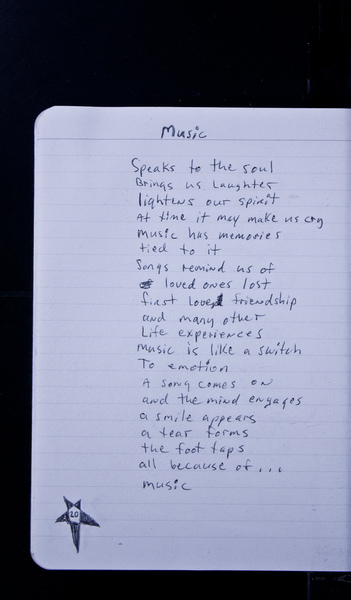 Music
Speaks to the soul
Brings us Laughter
lightens our spirit
At time it may make us cry
music has memories
tied to it
Songs remind us of
loved ones lost
first love friendship
and many other
Life experiences
music is like a switch
To emotion
A song comes on
and the mind engages
a smile appears
a tear forms
the foot taps
all because of...
music
20